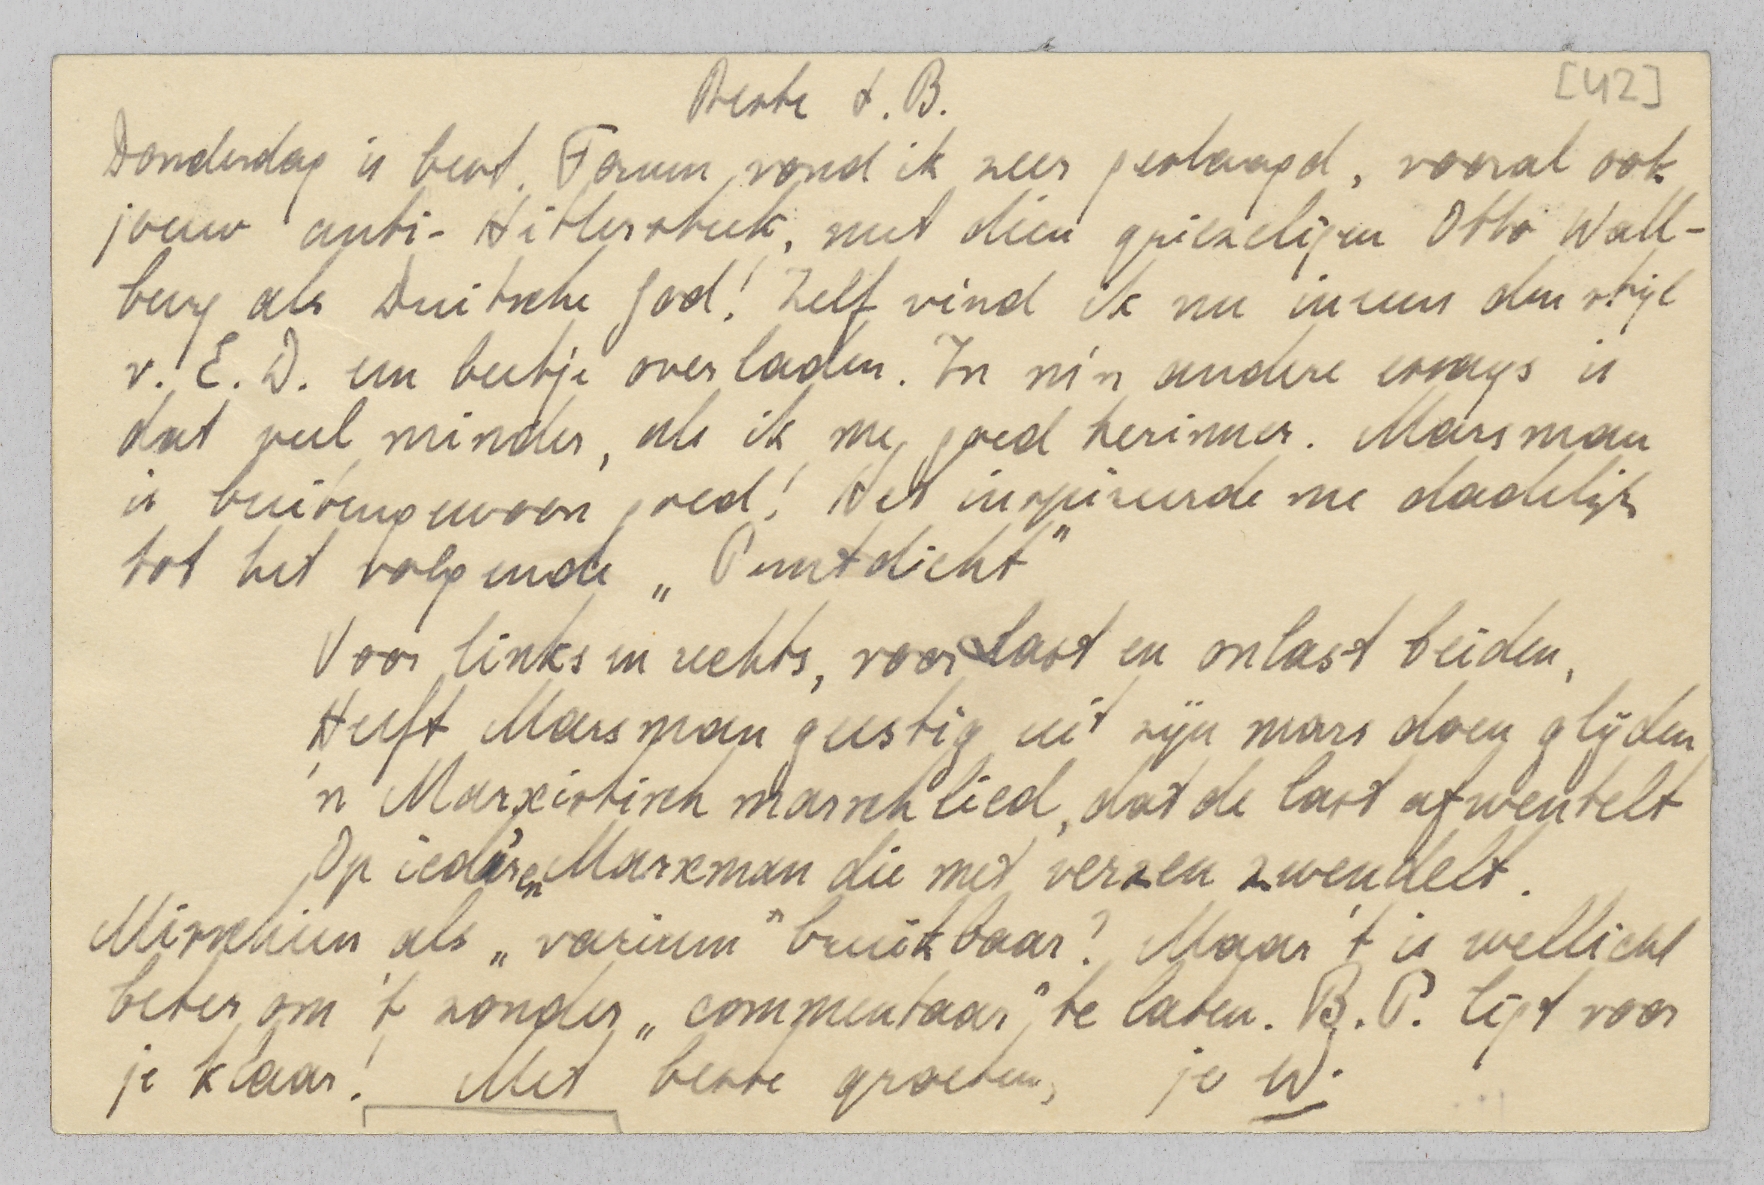 [42]
Beste t. B.
Donderdag is best. Forum vond ik zeer geslaagd, vooral ook
jouw anti-Hitlerstuk, met dien griezeligen Otto Wall-
burg als Duitsche God! Zelf vind ik nu ineens den stijl
v. E. D. een beetje overladen. In m'n andere essays is
dat veel minder, als ik me goed herinner. Marsman
is buitengewoon goed! Het inspireerde me dadelijk
tot het volgende „Puntdicht"
Voor links en rechts, voor last en onlast beiden,
Heeft Marsman geestig uit zijn mars doen glijden
'n Marxistisch marschlied, dat de last afwentelt
Op ied'ren Marxman die met verzen zwendelt.
Misschien als „varium" bruikbaar? Maar 't is wellicht
beter om 't zonder „commentaar" te laten. B. P. ligt voor
je klaar! Met beste groeten, je W.